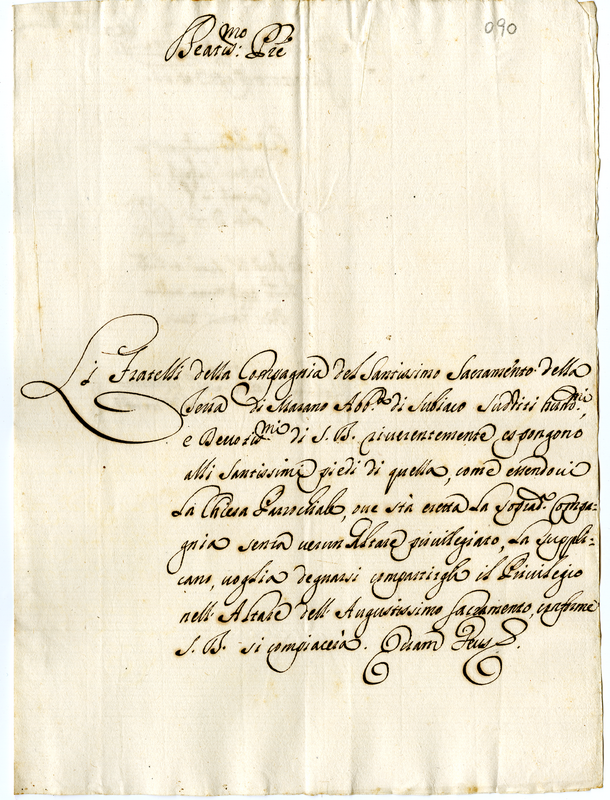 090
Beatis:mo Pre
Li Fratelli della Compagnia del Santissimo Sacramento della
Terra di Marano Abb.a di Subiaco Sudditi humi.mi,
e Devotis.mi di S. B. riverentemente espongono
alli Santissimi piedi di quella, come essendovi
La Chiesa Parrochiale, ove stà eretta La Sopra.d Compa-
gnia senza verun Altare privilegiato, La suppli-
cano, voglia degnarsi compartirgli il Privilegio
nell' Altare dell' Augustissimo Sacramento, conforme
S. B. si compiacerà. Quam Deus &.